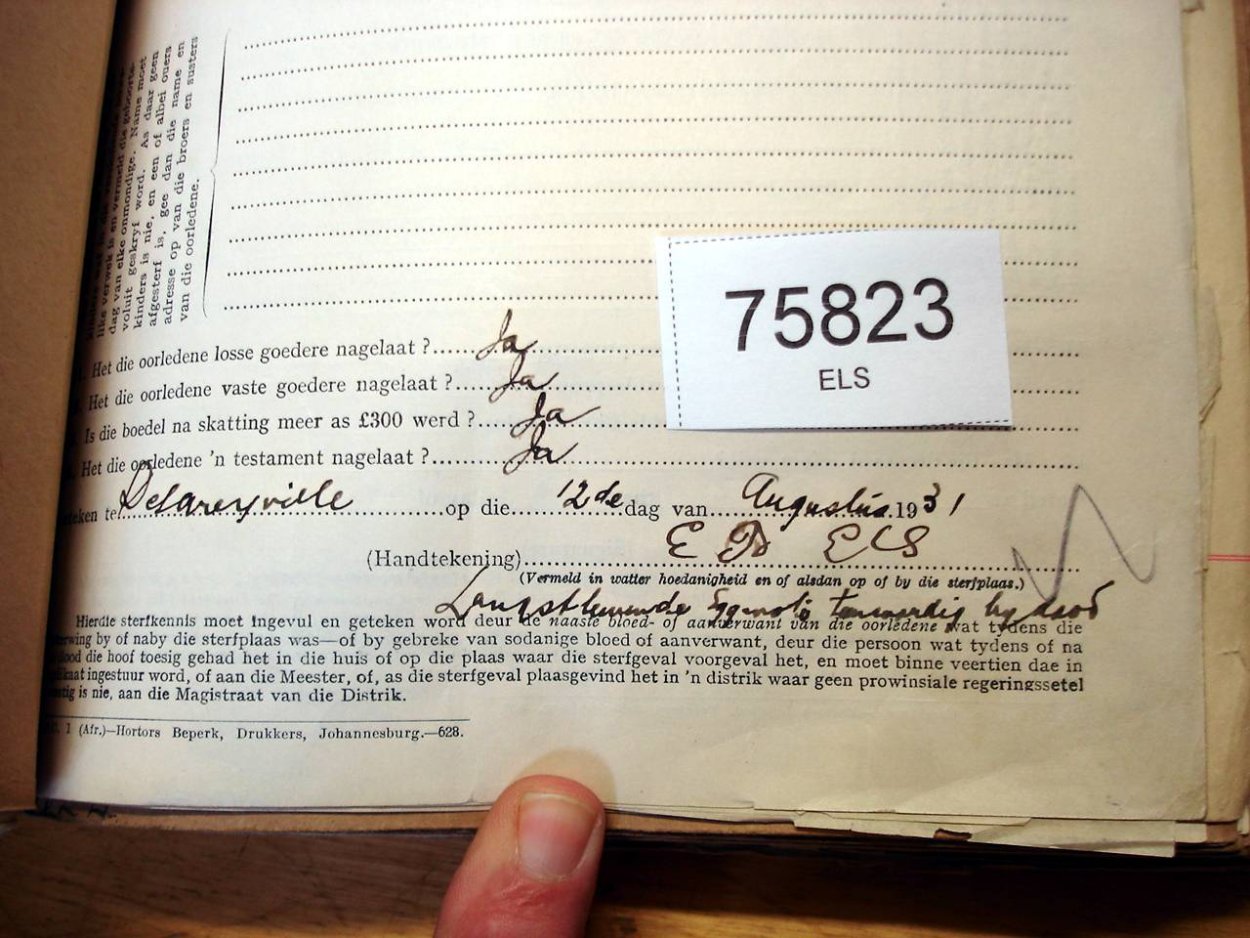 dag van elke onmondige. Name moet
voluit geskryf word. As daar geen
kinders is nie, en een of albei ouers
afgesterf is, gee dan die name en
adresse op van die broers en susters
van die oorledene.
75823
ELS
Het die oorledene losse goedere nagelaat ? Ja
Het die oorledene vaste goedere nagelaat ? Ja
Is die boedel na skatting meer as £300 werd ? Ja
Het die oorledene 'n testament nagelaat ? Ja
te Delareyville op die 12de dag van Augustus 1931
(Handtekening) E B ELS
(Vermeld in watter hoedanigheid en of alsdan op of by die sterfplaas.)
Langstlewende Eggenote teenwoordig by dood
Hierdie sterfkennis moet ingevul en geteken word deur de naaste bloed- of aanverwant van die oorledene wat tydens die
by of naby die sterfplaas was—of by gebreke van sodanige bloed of aanverwant, deur die persoon wat tydens of na
die hoof toesig gehad het in die huis of op die plaas waar die sterfgeval voorgeval het, en moet binne veertien dae in
ingestuur word, of aan die Meester, of, as die sterfgeval plaasgevind het in 'n distrik waar geen prowinsiale regeringssetel
is nie, aan die Magistraat van die Distrik.
1 (Afr.)—Hortors Beperk, Drukkers, Johannesburg.—628.